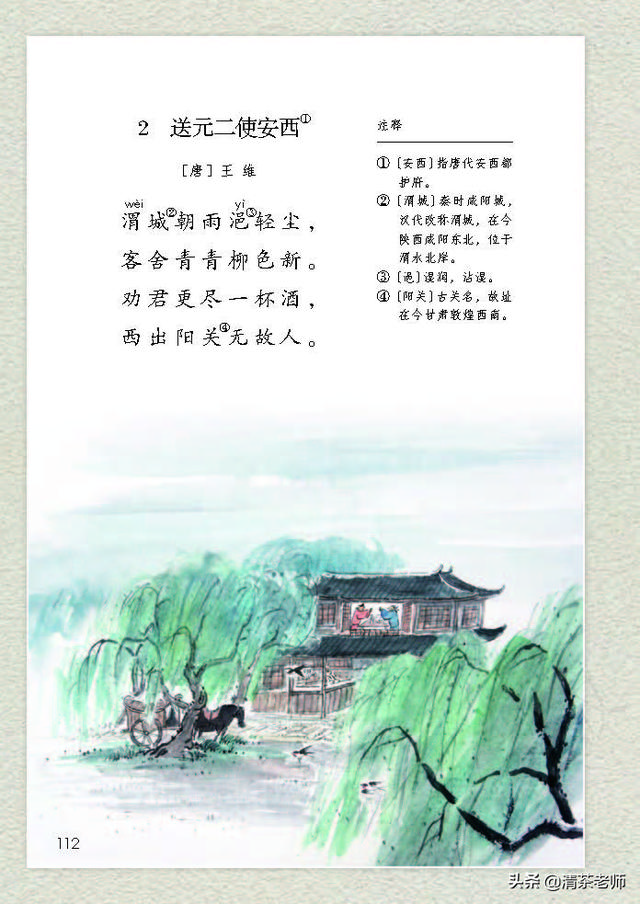 2 送元二使安西①
[唐] 王维
wèi yì
渭城②朝雨浥③轻尘，
客舍青青柳色新。
劝君更尽一杯酒，
西出阳关④无故人。
注释
①〔安西〕指唐代安西都
护府。
②〔渭城〕秦时咸阳城，
汉代改称渭城，在今
陕西咸阳东北，位于
渭水北岸。
③〔浥〕湿润，沾湿。
④〔阳关〕古关名，故址
在今甘肃敦煌西南。
112
头条 @清茶老师